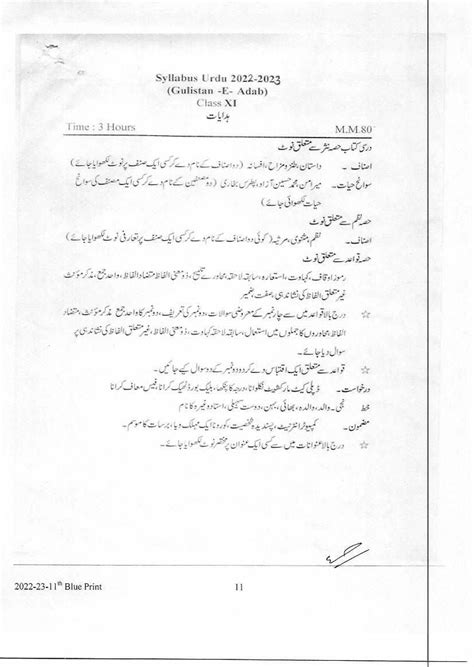 Syllabus Urdu 2022-2023
(Gulistan -E- Adab)
Class XI
ہدایات
Time : 3 Hours M.M.80
درسی کتاب حصہ نثر سے متعلق نوٹ
اصناف ۔ داستان، طنز و مزاح، افسانہ (دو اصناف کے نام دے کر کسی ایک صنف پر نوٹ لکھوایا جائے)
سوانح حیات ۔ میر امن، محمد حسین آزاد، پطرس بخاری (دو مصنفین کے نام دے کر کسی ایک مصنف کی سوانح
حیات لکھوائی جائے)
حصہ نظم سے متعلق نوٹ
اصناف ۔ نظم، مثنوی، مرثیہ (کوئی دو اصناف کے نام دے کر کسی ایک صنف پر تعارفی نوٹ لکھوایا جائے)
حصہ قواعد سے متعلق نوٹ
رموز اوقاف، کہاوت، استعارہ، سابقہ لاحقہ، محاورے، تلمیح، ذو معنی الفاظ، متضاد الفاظ، واحد جمع، مذکر مؤنث
غیر متعلق الفاظ کی نشاندہی، صفت، ضمیر
☆ درج بالا قواعد میں سے چار نمبر کے معروضی سوالات، دو نمبر کی تعریف، دو نمبر کا واحد جمع، مذکر مؤنث، متضاد
الفاظ، محاوروں کا جملوں میں استعمال، سابقہ لاحقہ، کہاوت، ذو معنی الفاظ، غیر متعلق الفاظ کی نشاندہی پر
سوال دیا جائے۔
☆ قواعد سے متعلق ایک اقتباس دے کر دو دو نمبر کے دو سوال کیے جائیں۔
درخواست ۔ ڈپلی کیٹ مارکشیٹ نکلوانا، درجہ کا پنکھا، بلیک بورڈ ٹھیک کرانا، فیس معاف کرانا
خط نجی۔ والد، والدہ، بھائی، بہن، دوست سہیلی، استاد وغیرہ کا نام
مضمون ۔ کمپیوٹر انٹرنیٹ، پسندیدہ شخصیت، کورونا ایک مہلک وبا، برسات کا موسم۔
☆ درج بالا عنوانات میں سے کسی ایک عنوان پر مختصر نوٹ لکھوایا جائے۔
2022-23-11th Blue Print 11